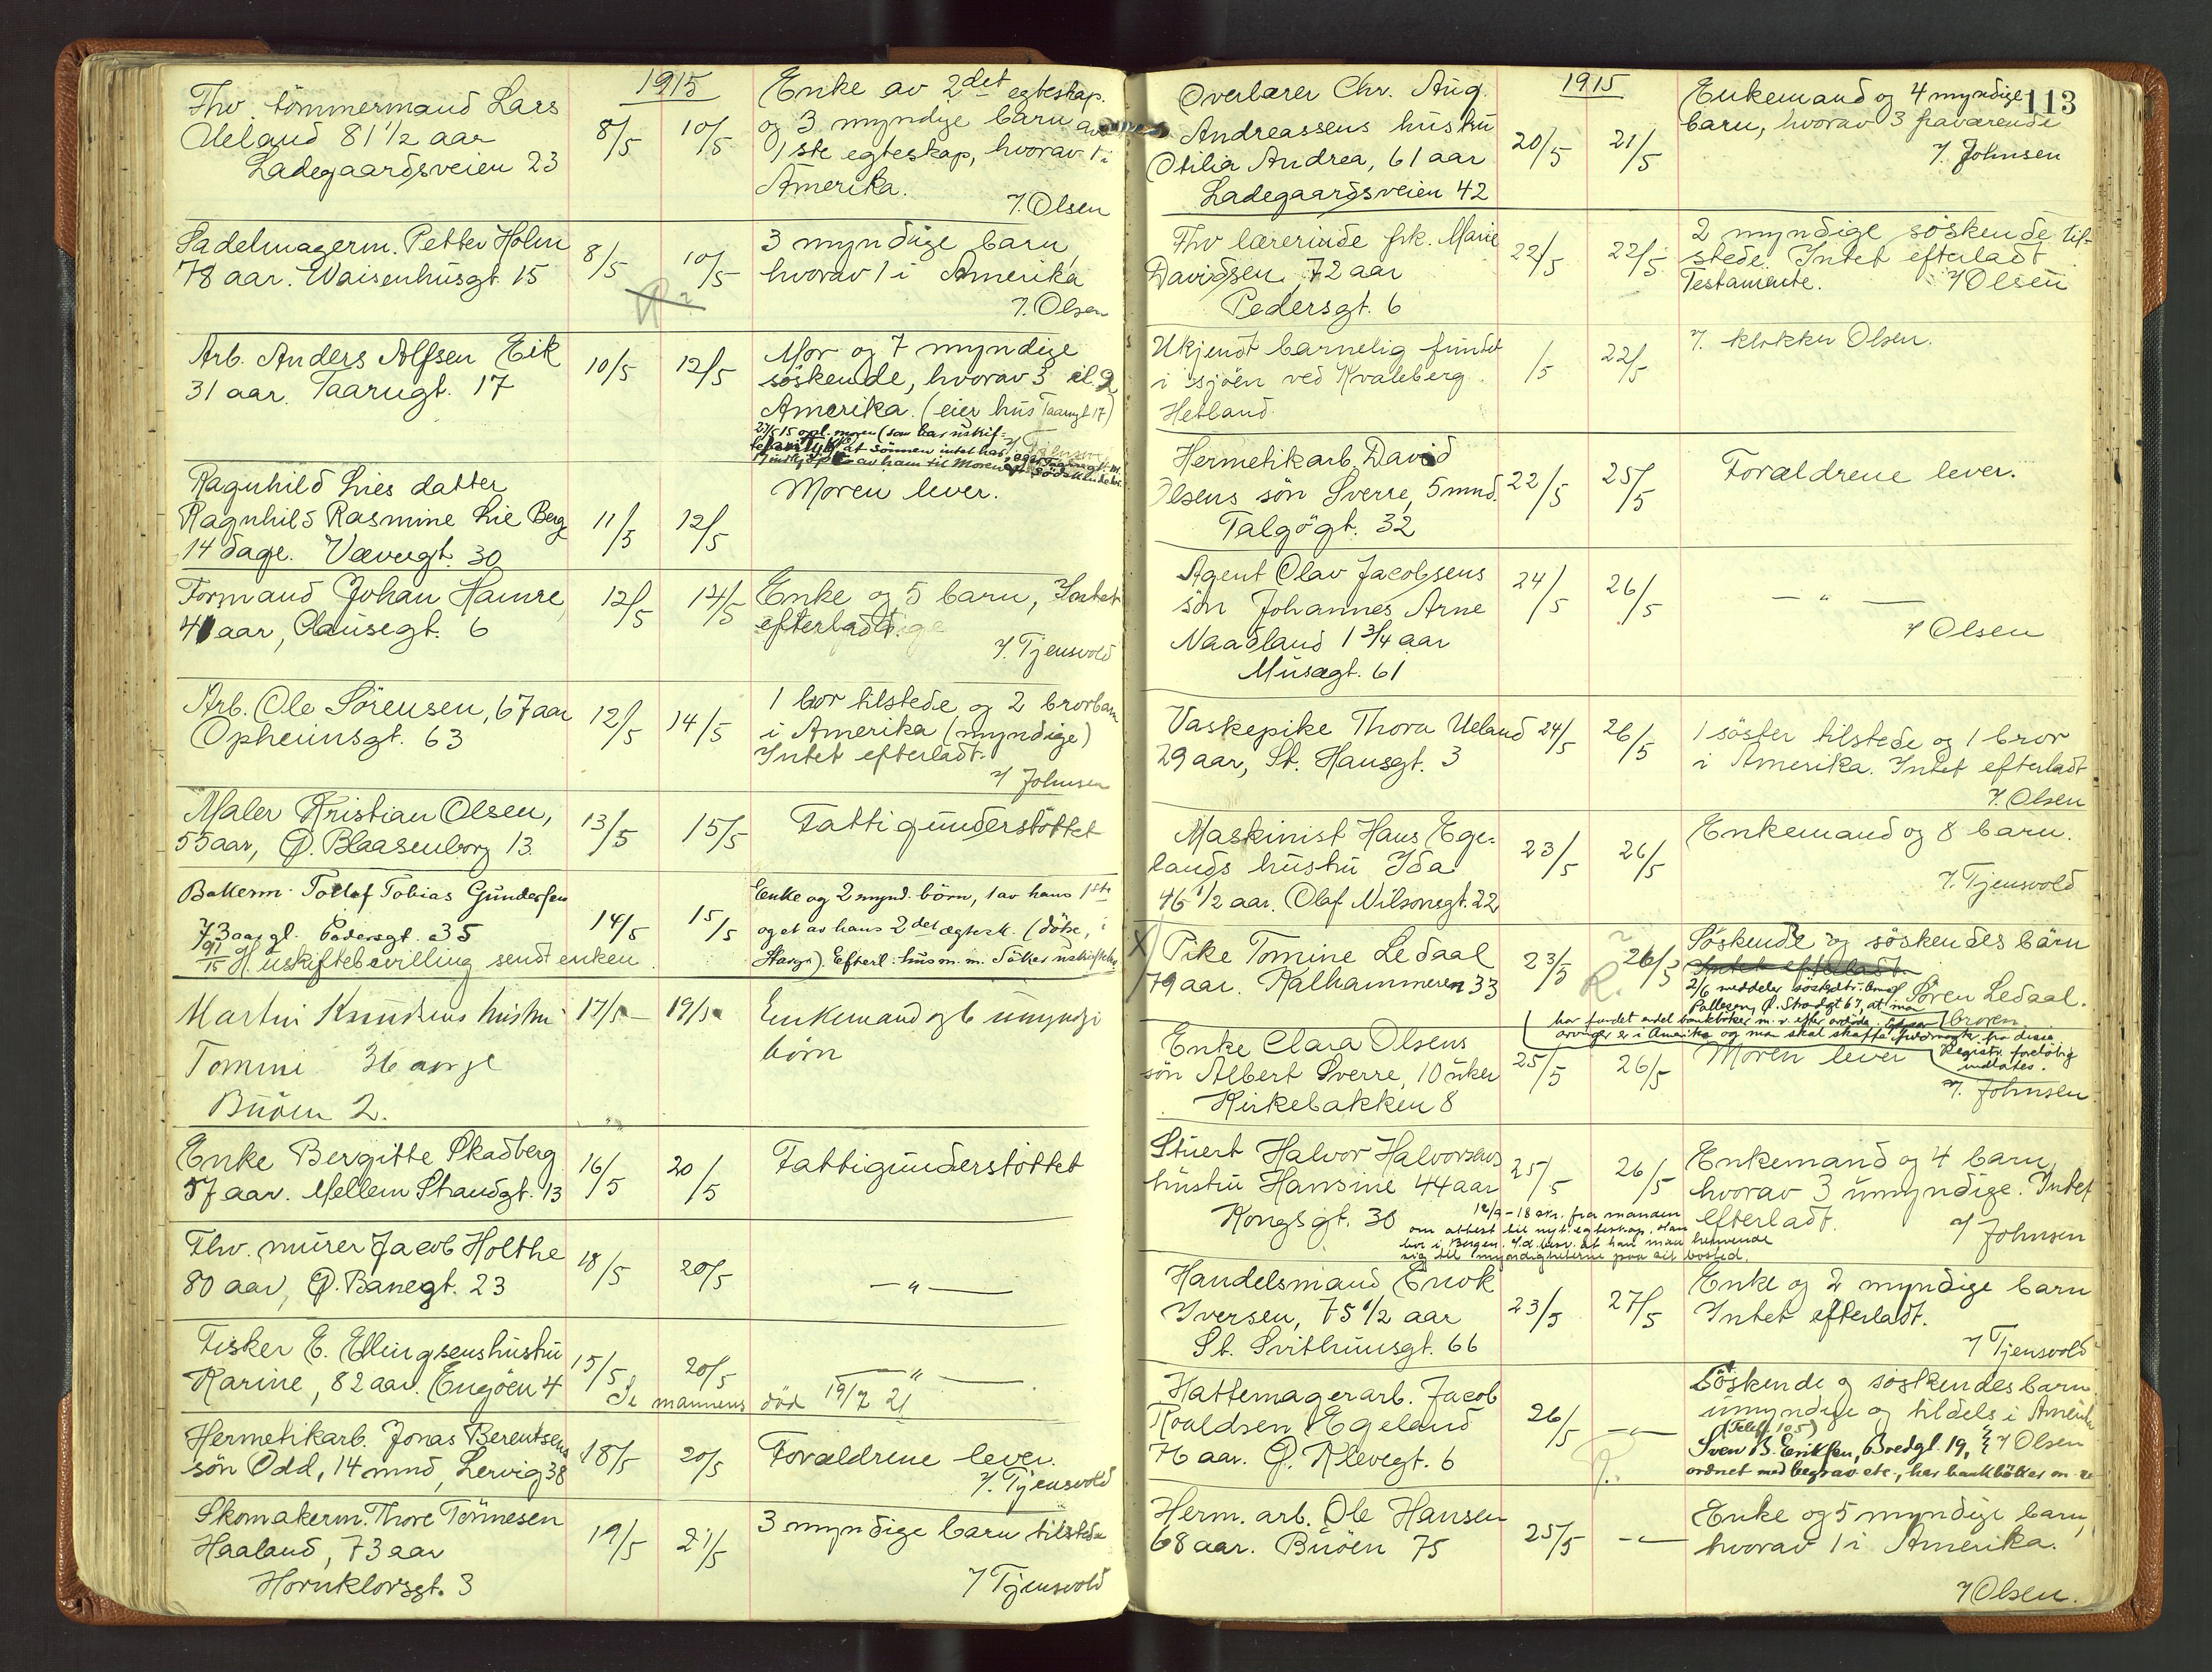 1915
Fhv. tömmermand Lars
Ueland 81 1/2 aar
Ladegaardsveien 23
8/5 10/5
Enke av 2det egteskap.
og 3 myndige barn av
1ste egteskap, hvorav 1 i
Amerika.
/. Olsen
Sadelmagerm. Petter Holm
78 aar. Waisenhusgt. 15
8/5 10/5
3 myndige barn,
hvorav 1 i Amerika
/. Olsen
Arb. Anders Alfsen Eik
31 aar. Taarugt. 17
10/5 12/5
Mor og 7 myndige
söskende, hvorav 3
Amerika. (eier hus Taarugt 17)
at sönnen intet har
av ham til Moren
Ragnhild Lies datter
Ragnhild Rasmine Lie Berg
14 dage. Vævergt. 30
11/5 12/5
Moren lever.
Formand Johan Hamre,
41 aar, Clausegt. 6
12/5 14/5
Enke og 5 barn, Intet
efterladt
/. Tjensvold
Arb. Ole Sörensen, 67 aar
Opheimsgt. 63
12/5 14/5
1 bror tilstede og 2 brorbarn
i Amerika (myndige)
Intet efterladt.
/ Johnsen
Maler Kristian Olsen,
55 aar, Ø. Blaasenborg 13.
13/5 15/5
Fattigunderstöttet
Bakerm. Tollof Tobias Gundersen
73 aar gl. Pedersgt. 35
14/5 15/5
Enke og 2 mynd. börn, 1 av hans 1ste
og et av hans 2det ægtesk. (döve, i
Efterl. hus m. m. Söker uskifte
uskiftebevilling sendt enken
Martin Knudsens hustru
Tomine 36 aar gl
Buöen 2.
17/5 19/5
Enkemand og 6 umyndige
börn
Enke Bergitte Skadberg
57 aar. Mellem Strandgt. 13
16/5 20/5
Fattigunderstöttet
Fhv. murer Jacob Holthe
80 aar, Ø. Banegt. 23
18/5 20/5
— " —
Fisker E. Ellingsens hustru
Karine, 82 aar. Engöen 4
15/5 20/5
— " —
Se mannens död 19/2 21
Hermetikarb. Jonas Berentsens
sön Odd, 14 mnd, Lervig 38
18/5 20/5
Forældrene lever.
/. Tjensvold
Skomakerm. Thore Tönnesen
Haaland, 73 aar
Hornklovsgt. 3
19/5 21/5
3 myndige barn tilstede
/ Tjensvold
113
1915
Overlærer Chr. Aug.
Andreassens hustru
Otilia Andrea, 61 aar
Ladegaardsveien 42
20/5 21/5
Enkemand og 4 myndige
barn, hvorav 3 fraværende
/. Johnsen
Fhv lærerinde frk. Marie
Davidsen, 72 aar
Pedersgt. 6
22/5 22/5
2 myndige söskende til-
stede. Intet efterladt
Testamente.
/ Olsen
Ukjendt barnelig fundet
i sjöen ved Kvaleberg
Hetland
/5 22/5
/. klokker Olsen.
Hermetikarb. David
Olsens sön Sverre, 5 mnd.
Talgögt. 32
22/5 25/5
Forældrene lever.
Agent Olav Jacobsens
sön Johannes Arne
Naadland 1 3/4 aar
Musægt. 61
24/5 26/5
— " —
/ Olsen
Vaskepike Thora Ueland
29 aar, St. Hansgt. 3
24/5 26/5
1 söster tilstede og 1 bror
i Amerika. Intet efterladt
/. Olsen
Maskinist Hans Ege-
lands hustru Ida
46 1/2 aar. Olaf Nilsonsgt. 22
23/5 26/5
Enkemand og 8 barn.
/. Tjensvold
X Pike Tomine Ledaal
79 aar. Kalhammeren 33
23/5 26/5
R.
Söskende og söskendes barn
Intet efterladt.
Sören Ledaal.
broren
2/6 meddeler
Pallesen, Ø. Strandgt 67, at
har fundet endel bankböker m. v. efter avdöde.
arvinger er i Amerika og man skal skaffe fra disse
Registr. foreløbig
indlates.
Enke Clara Olsens
sön Albert Sverre, 10 uker
Kirkebakken 8
25/5 26/5
Moren lever
/. Johnsen
Stuert Halvor Halvorsens
hustru Hansine 44 aar
Kongsgt. 30
25/5 26/5
Enkemand og 4 barn,
hvorav 3 umyndige. Intet
efterladt.
/ Johnsen
12/9-18 skr. fra manden
om attest til nyt egteskap. Han
bor i Bergen. at han maa henvende
sig til myndigheterne paa sit bosted.
Handelsmand Enok
Iversen, 75 1/2 aar
St. Svithunsgt. 66
23/5 27/5
Enke og 2 myndige barn
Intet efterladt.
/ Tjensvold
Hattemagerarb. Jacob
Roaldsen Egeland
76 aar. Ø. Klevegt. 6
26/5 — " —
R.
Söskende og söskendes barn
umyndige og tildels i Amerika
(Telef. 105)
Sven B. Eriksen, Bredgt. 19, / Olsen
ordnet med begrav. etc, har bankböker m. v.
Herm. arb. Ole Hansen
68 aar. Buöen 75
25/5 — " —
Enke og 5 myndige barn,
hvorav 1 i Amerika.
/ Olsen.